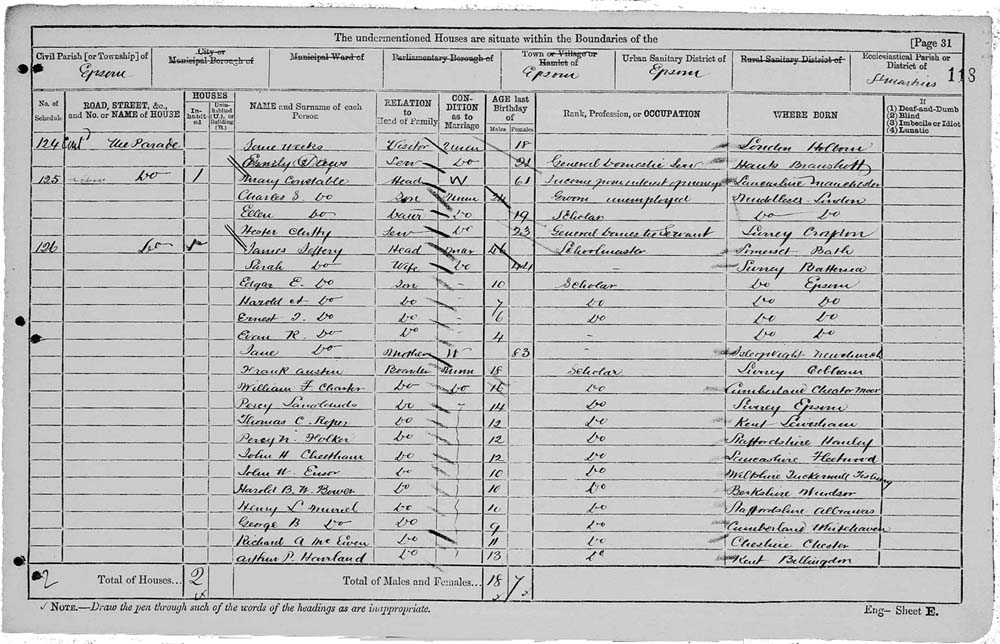 The undermentioned Houses are situate within the Boundaries of the
[Page 31
118
Civil Parish [or Township] of Epsom
City or Municipal Borough of
Municipal Ward of
Parliamentary Borough of
Town or Village or Hamlet of Epsom
Urban Sanitary District of Epsom
Rural Sanitary District of
Ecclesiastical Parish or District of St Martins
No. of Schedule
ROAD, STREET, &c., and No. or NAME of HOUSE
HOUSES
Inhabited
Uninhabited (U.), or Building (B.)
NAME and Surname of each Person
RELATION to Head of Family
CONDITION as to Marriage
AGE last Birthday of
Males
Females
Rank, Profession, or OCCUPATION
WHERE BORN
If
(1) Deaf-and-Dumb
(2) Blind
(3) Imbecile or Idiot
(4) Lunatic
124 The Parade Jane Weeks Visitor Unm 18 London Holborn
Emily Serv Do 21 General Domestic Serv Hants Bramshott
125 Do 1 Mary Constable Head W 61 Income from interest of money Lancashire Manchester
Charles S. Do Son Unm Groom unemployed Middlesex London
Ellen Do Daur Do 19 Scholar Do Do
Hester Serv Do 23 General Domestic Servant Surrey
126 Do 1 James Jeffery Head Mar 46 Schoolmaster Somerset Bath
Sarah Do Wife Do 44 - Surrey Battersea
Edgar E. Do Son 10 Scholar Do Epsom
Harold A Do Do 7 Do Do Do
Ernest Do Do 6 Do Do Do
Evan R. Do Do 4 - Do Do
Jane Do Mother W 83 - Isle of Wight Newchurch
Frank Austin Boarder Unm 18 Scholar Surrey Cobham
William F Do Do 16 Do Cumberland Cleator Moor
Percy Do - 14 Do Surrey Epsom
Thomas C. Roper Do - 12 Do Kent Lewisham
Percy N. Holker Do - 12 Do Staffordshire Hanley
John H Cheetham Do 12 Do Lancashire Fleetwood
John W. Ensor Do 10 Do Wiltshire Tuckermill Tisbury
Harold B. W. Bower Do 10 Do Berkshire Windsor
Henry L Muriel Do 10 Do Staffordshire Alrewas
George B Do Do 9 Do Cumberland Whitehaven
Richard A McEwen Do 11 Do Cheshire Chester
Arthur P. Do 13 Do Kent
2 Total of Houses... 2 Total of Males and Females... 18 7
✓ NOTE.—Draw the pen through such of the words of the headings as are inappropriate.
Eng- Sheet E.